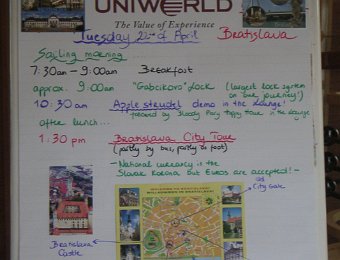 UNIWORLD
The Value of Experience
Tuesday 22nd of April Bratislava
Sailing morning
7:30am - 9:00am Breakfast
approx. 9:00am "Gabcikovo" Lock (largest lock system
on our journey!)
10:30am Apple strudel demo in the lounge!
followed by Bloody Mary happy hour in the lounge
after lunch....
1:30 pm Bratislava City Tour
(partly by bus, partly by foot)
- National currency is the
Slovak Koruna, but Euros are accepted! -
old
City Gate
Bratislava
Castle